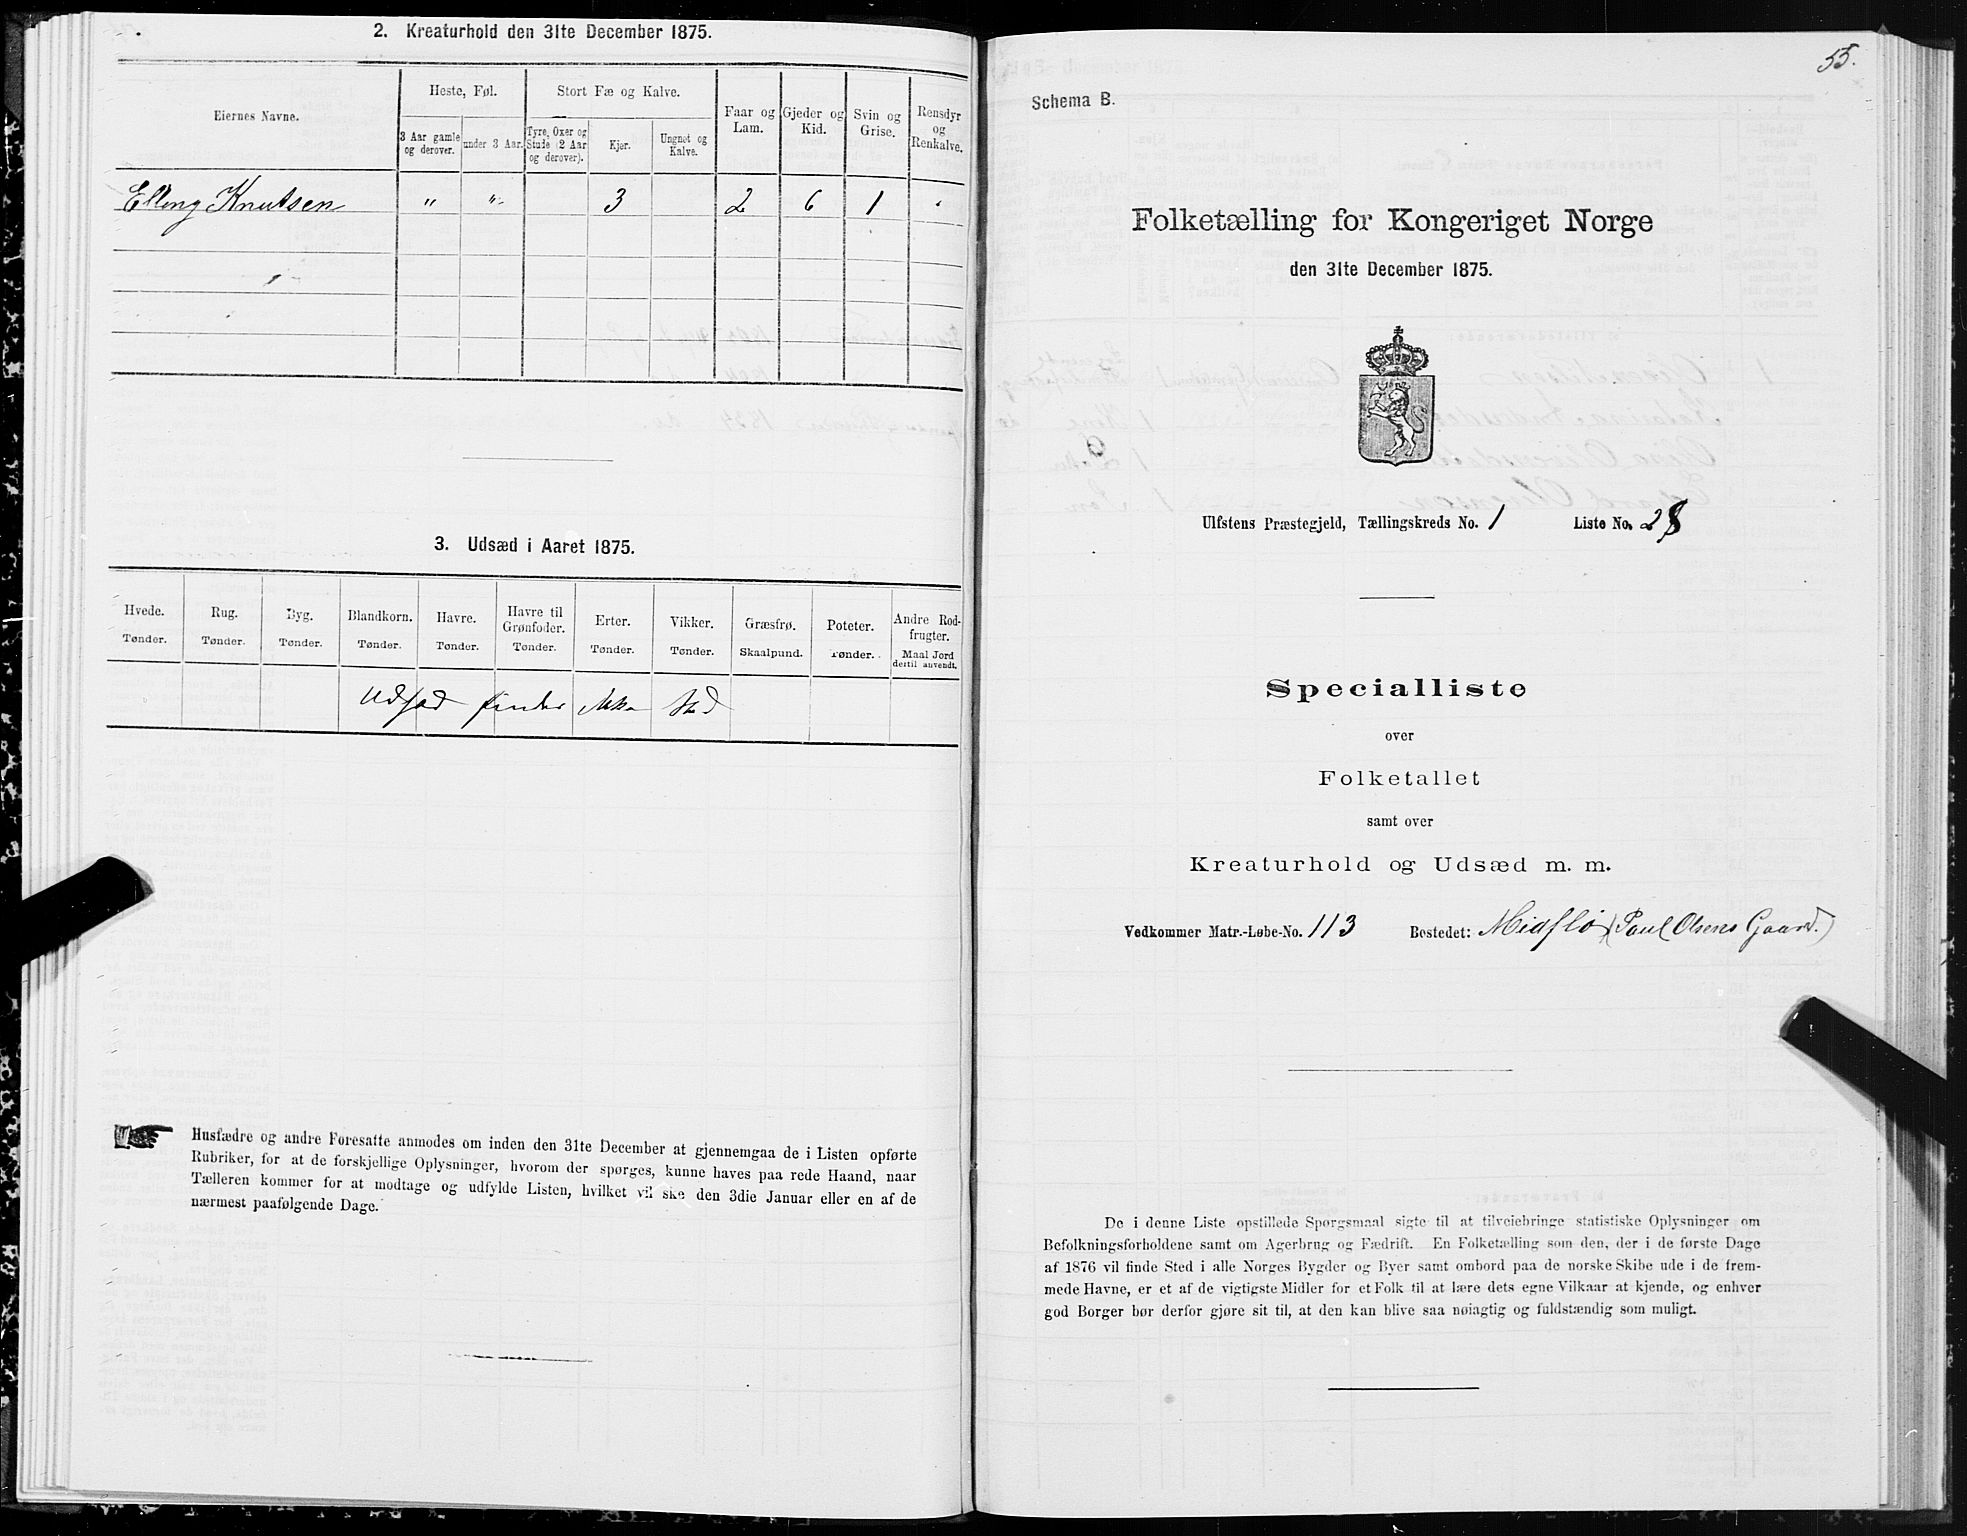 2. Kreaturhold den 31te December 1875.
Eiernes Navne.
Heste, Føl.
Stort Fæ og Kalve.
Faar og Lam.
Gjeder og Kid.
Svin og Grise.
Rensdyr og Renkalve.
3 Aar gamle og derover.
under 3 Aar.
Tyre, Oxer og Stude (2 Aar og derover).
Kjør.
Ungnøt og Kalve.
Elling Knutsen " " 3 2 6 1 "
3. Udsæd i Aaret 1875.
Hvede. Tønder.
Rug. Tønder.
Byg. Tønder.
Blandkorn. Tønder.
Havre. Tønder.
Havre til Grønfoder. Tønder.
Erter. Tønder.
Vikker. Tønder.
Græsfrø. Skaalpund.
Poteter. Tønder.
Andre Rodfrugter. Maal Jord dertil anvendt.
Udsæd finder ikke Sted
Husfædre og andre Foresatte anmodes om inden den 31te December at gjennemgaa de i Listen opførte
Rubriker, for at de forskjellige Oplysninger, hvorom der spørges, kunne haves paa rede Haand, naar
Tælleren kommer for at modtage og udfylde Listen, hvilket vil ske den 3die Januar eller en af de
nærmest paafølgende Dage.
55.
Schema B.
Folketælling for Kongeriget Norge
den 31te December 1875.
Ulfstens Præstegjeld, Tællingskreds No. 1 Liste No. 28
Specialliste
over
Folketallet
samt over
Kreaturhold og Udsæd m. m.
Vedkommer Matr.-Løbe-No. 113 Bostedet: Midflø (Paul Olsens Gaard.)
De i denne Liste opstillede Spørgsmaal sigte til at tilveiebringe statistiske Oplysninger om
Befolkningsforholdene samt om Agerbrug og Fædrift. En Folketælling som den, der i de første Dage
af 1876 vil finde Sted i alle Norges Bygder og Byer samt ombord paa de norske Skibe ude i de frem-
mede Havne, er et af de vigtigste Midler for et Folk til at lære dets egne Vilkaar at kjende, og enhver
god Borger bør derfor gjøre sit til, at den kan blive saa nøiagtig og fuldstændig som muligt.